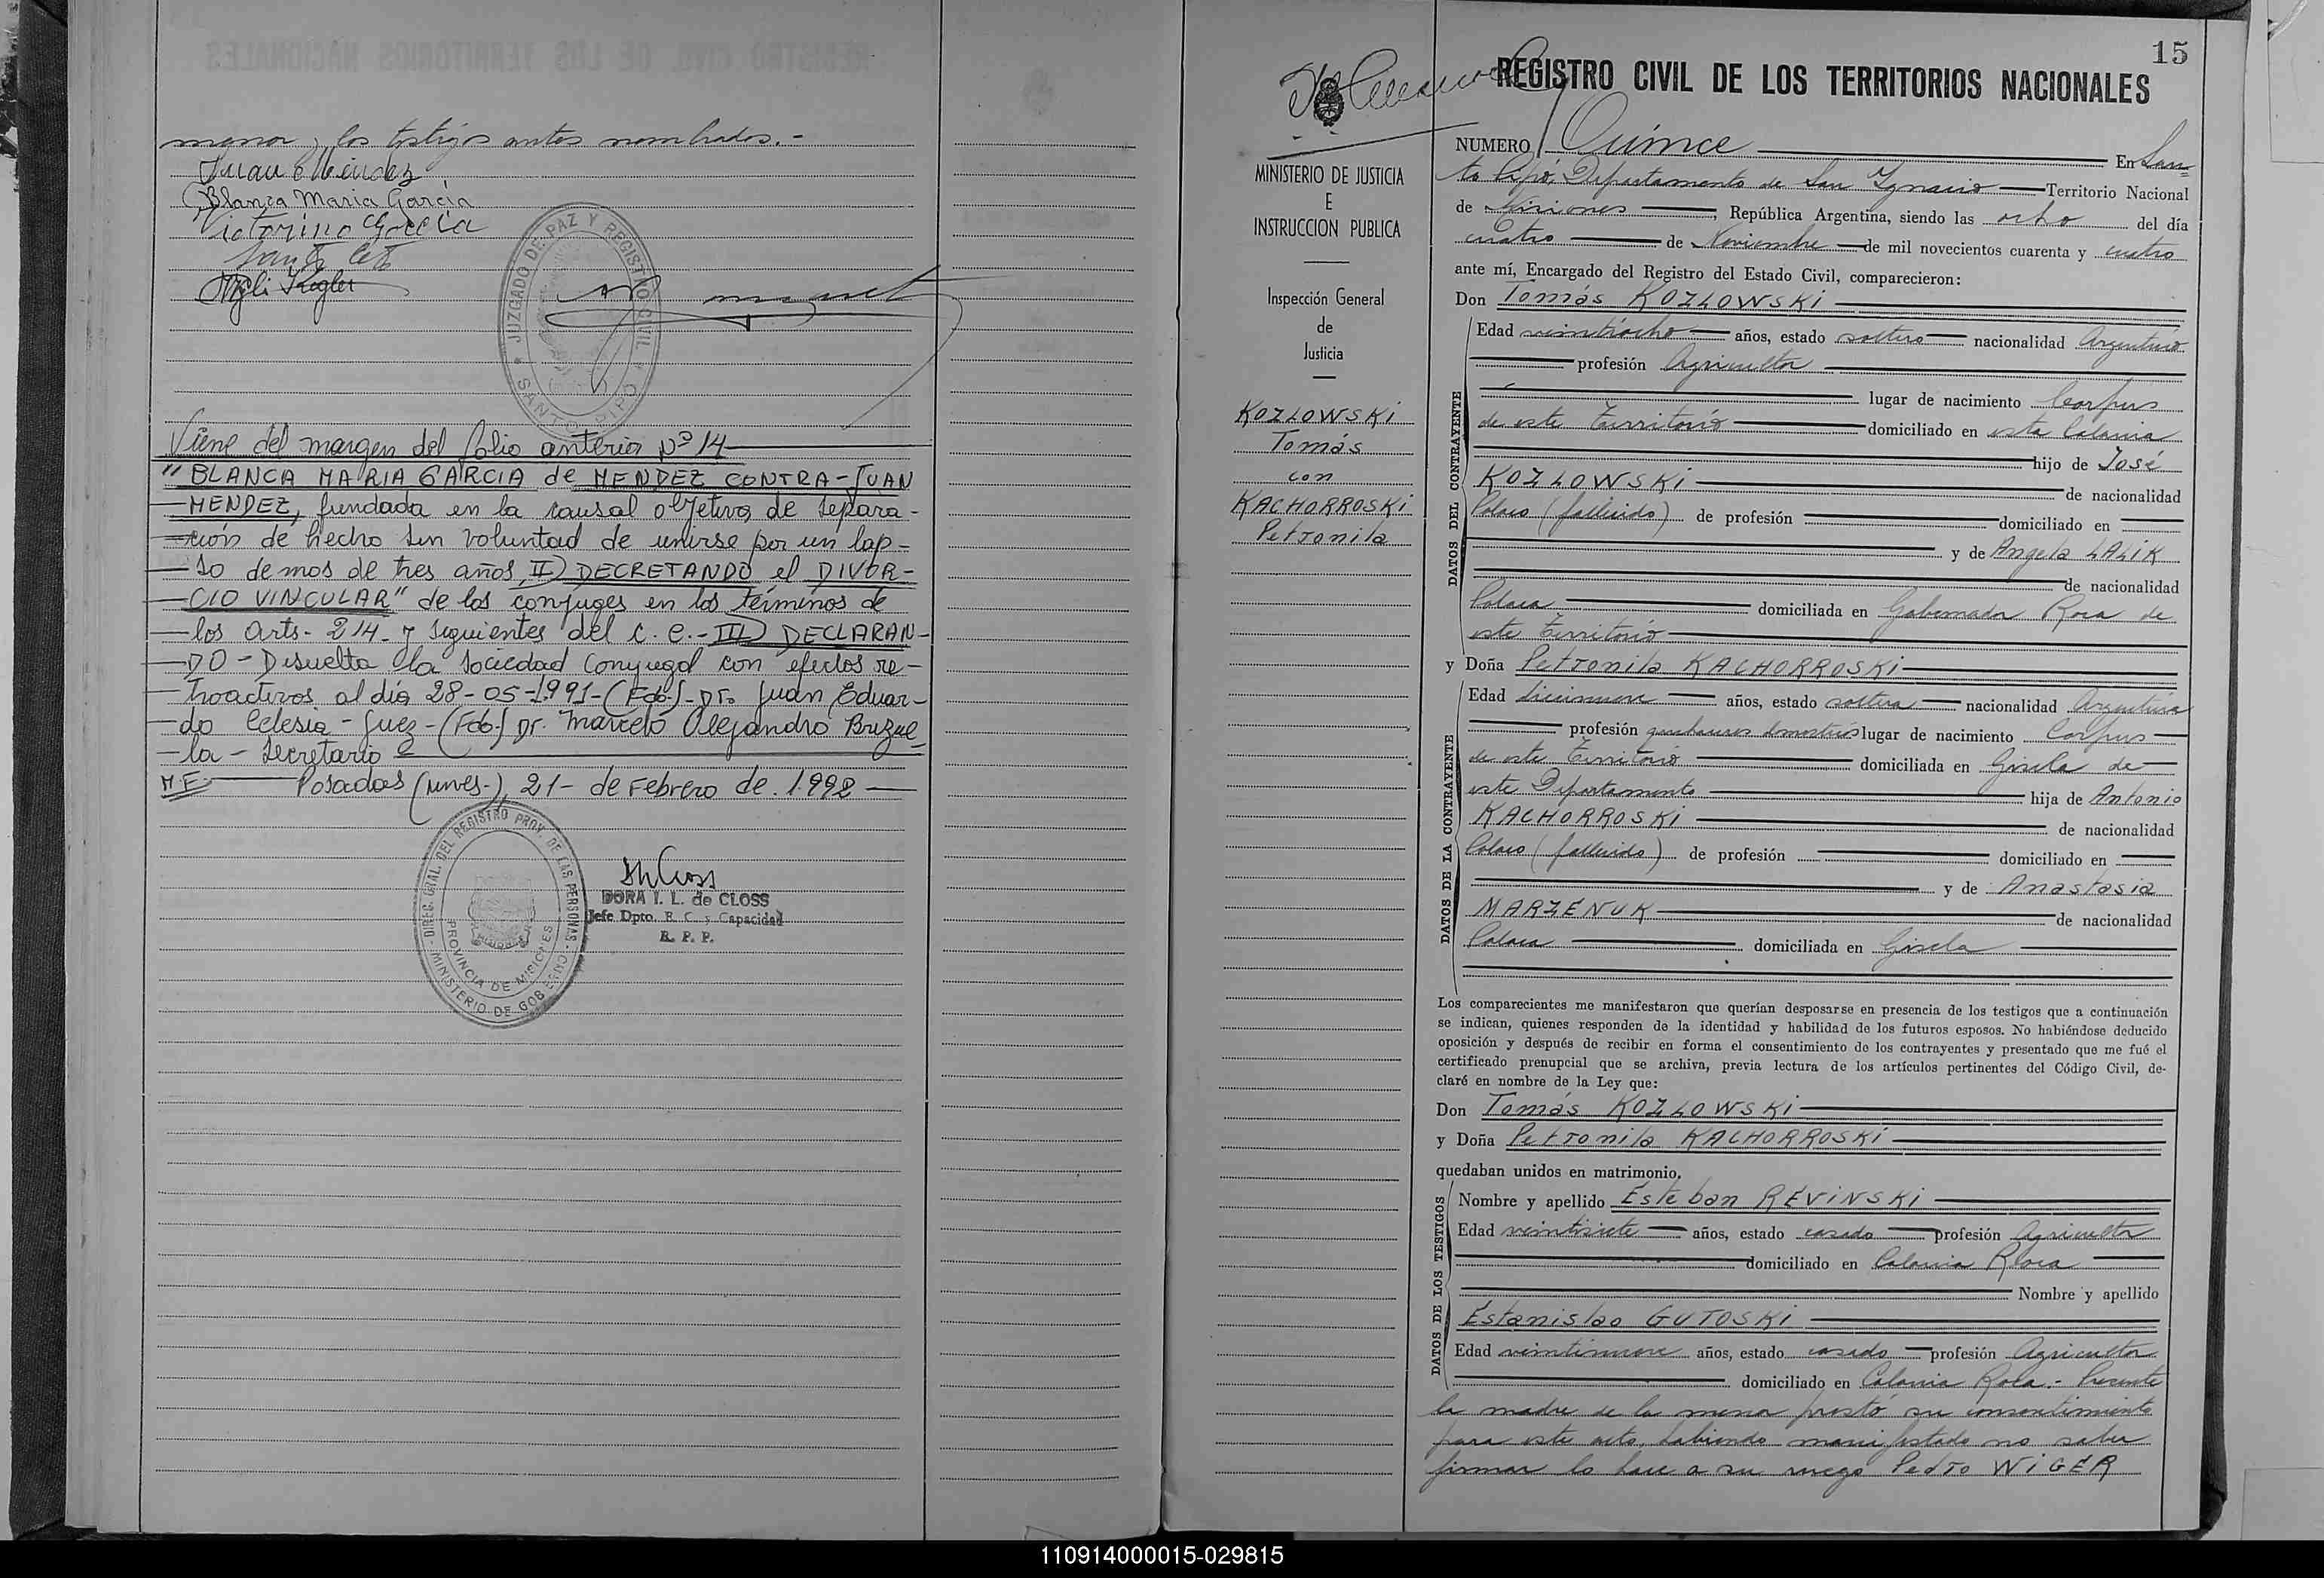 menor y los testigos antes nombrados.-
Juan Méndez
Blanca Maria García
Victorino García
Kegler
JUZGADO DE PAZ Y REGISTRO CIVIL
SANTO PIPO
Viene del margen del folio anterior Nº 14
"BLANCA MARIA GARCIA de MENDEZ CONTRA - JUAN
MENDEZ, fundada en la causal objetiva de separa-
ción de hecho sin voluntad de unirse por un lap-
so de mas de tres años, II) DECRETANDO el DIVOR-
CIO VINCULAR" de los conyuges en los términos de
los arts- 214 y siguientes del C. C.- III) DECLARAN-
DO - Disuelta la sociedad conyugal con efectos re-
troactivos al día 28-05-1991- (Fdo.) Dr. Juan Eduar-
do Celesia - Juez - (Fdo.) Dr. Marcelo Alejandro Buzue
la - Secretario
M.E. Posadas (Mnes.), 21 - de Febrero de 1992
DIREC. GRAL. DEL REGISTRO PROV. DE LAS PERSONAS
MINISTERIO DE GOBIERNO
PROVINCIA DE MISIONES
DORA I. L. de CLOSS
Jefe Dpto. E. C. y Capacidad
R. P. P.
15
REGISTRO CIVIL DE LOS TERRITORIOS NACIONALES
MINISTERIO DE JUSTICIA
E
INSTRUCCION PUBLICA
Inspección General
de
Justicia
KOZLOWSKI
Tomás
con
KACHORROSKI
Petronila
NUMERO Quince En San-
to Pipó, Departamento de San Ygnacio Territorio Nacional
de Misiones, República Argentina, siendo las ocho del día
cuatro de Noviembre de mil novecientos cuarenta y cuatro
ante mí, Encargado del Registro del Estado Civil, comparecieron:
Don Tomás KOZLOWSKI
DATOS DEL CONTRAYENTE
Edad veintiocho años, estado soltero nacionalidad Argentino
profesión Agricultor
lugar de nacimiento Corpus
de este Territorio domiciliado en esta Colonia
hijo de José
KOZLOWSKI de nacionalidad
Polaco (fallecido) de profesión domiciliado en
y de Angela LALIK
de nacionalidad
Polaca domiciliada en Gobernador Roca de
este Territorio
y Doña Petronila KACHORROSKI
DATOS DE LA CONTRAYENTE
Edad diecinueve años, estado soltera nacionalidad Argentina
profesión quehaceres domésticos lugar de nacimiento Corpus
de este Territorio domiciliada en Gisela de
este Departamento hija de Antonio
KACHORROSKI de nacionalidad
Polaco (fallecido) de profesión domiciliado en
y de Anastasia
MARZENUK de nacionalidad
Polaca domiciliada en Gisela
Los comparecientes me manifestaron que querían desposarse en presencia de los testigos que a continuación
se indican, quienes responden de la identidad y habilidad de los futuros esposos. No habiéndose deducido
oposición y después de recibir en forma el consentimiento de los contrayentes y presentado que me fué el
certificado prenupcial que se archiva, previa lectura de los artículos pertinentes del Código Civil, de-
claré en nombre de la Ley que:
Don Tomás KOZLOWSKI
y Doña Petronila KACHORROSKI
quedaban unidos en matrimonio.
DATOS DE LOS TESTIGOS
Nombre y apellido Esteban REVINSKI
Edad veintisiete años, estado casado profesión Agricultor
domiciliado en Colonia Roca
Nombre y apellido
Estanislao GUTOSKI
Edad veintinueve años, estado casado profesión Agricultor
domiciliado en Colonia Roca.- Presente
la madre de la menor prestó su consentimiento
para este acto, habiendo manifestado no saber
firmar lo hace a su ruego Pedro WIGER
110914000015-029815